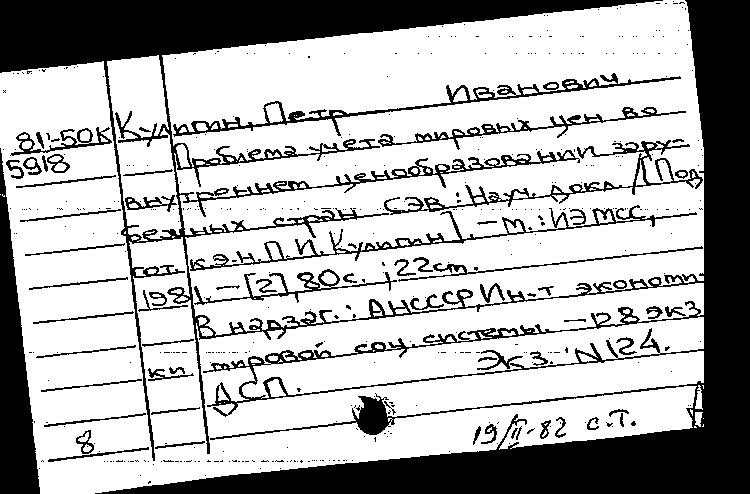 81-50К Кулигин, Петр Иванович.
5918 Проблема учета мировых цен во
внутреннем ценообразовании зару-
бежных стран СЭВ : Науч. докл. / [Под-
гот. к.э.н. П. И. Кулигин]. – М. : ИЭМСС,
1981. – [2], 80 с. ; 22 см.
В надзаг. : АН СССР, Ин-т экономи-
ки мировой соц. системы. – 128 экз
ДСП. Экз. N 124.
8 19/II-82 с.т.